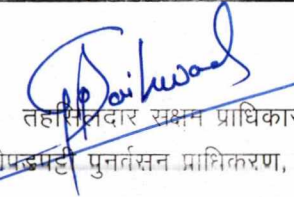 तहसिलदार सक्षम प्राधिकार
पडपट्टी पुनर्वसन प्राधिकरण,